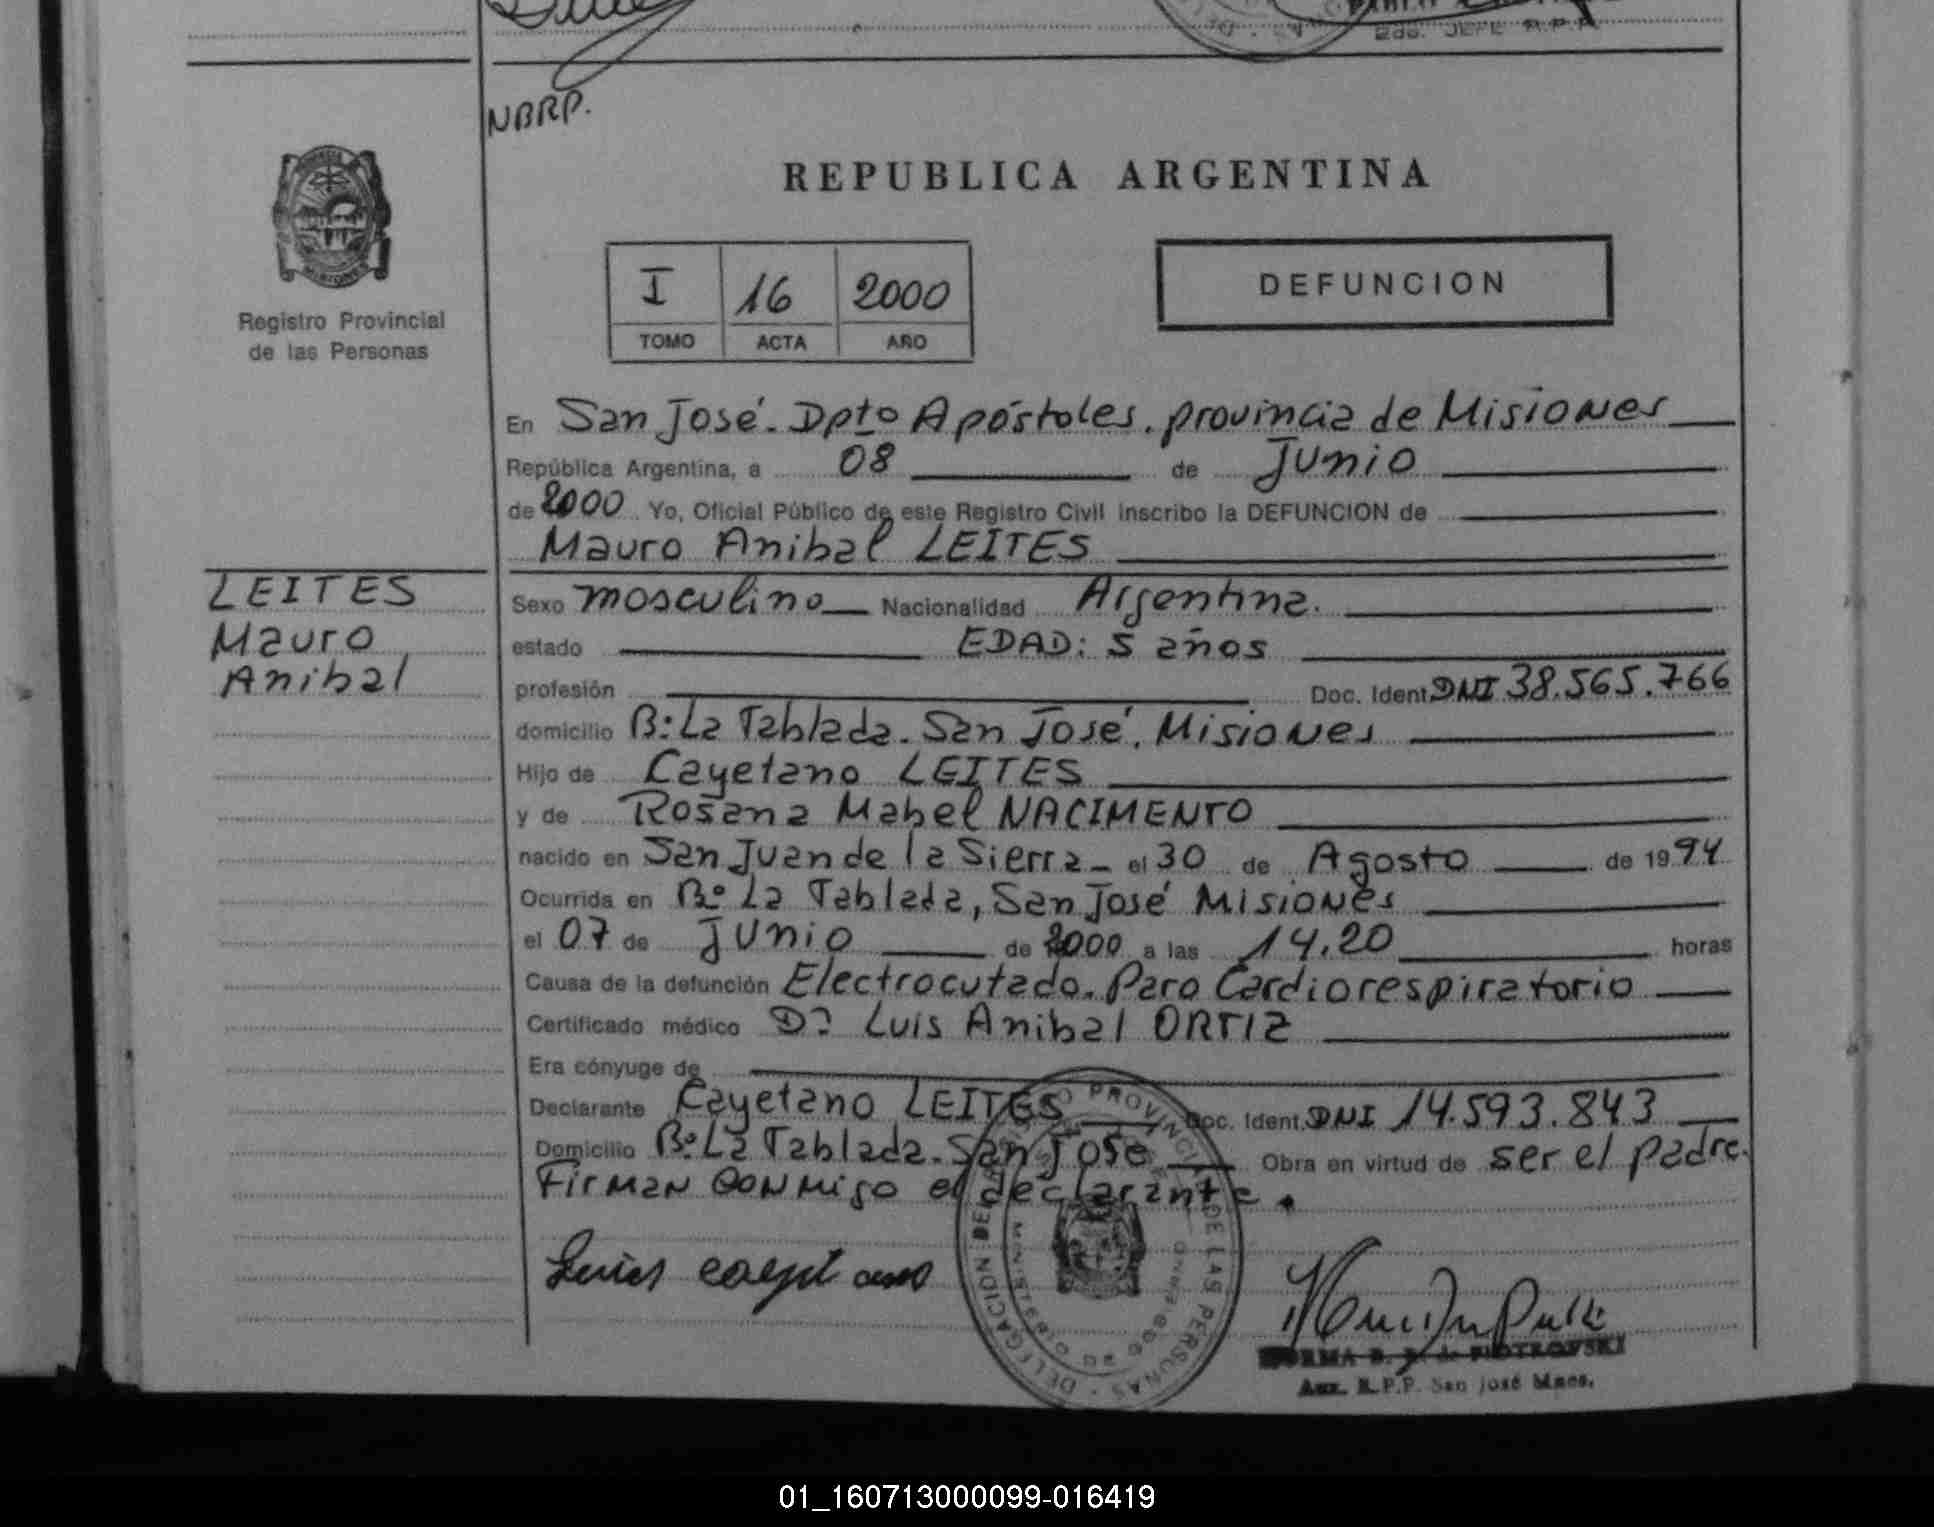 2do. JEFE R.P.P.
NBRP.
REPUBLICA ARGENTINA
I 16 2000
TOMO ACTA AÑO
DEFUNCION
Registro Provincial
de las Personas
En San José. Dpto Apóstoles, provincia de Misiones
República Argentina, a 08 de Junio
de 2000 Yo, Oficial Público de este Registro Civil inscribo la DEFUNCION de
Mauro Anibal LEITES
LEITES
Mauro
Anibal
Sexo masculino Nacionalidad Argentina.
estado EDAD: 5 años
profesión Doc. Ident. DNI 38.565.766
domicilio B: La Tablada. San José. Misiones
Hijo de Cayetano LEITES
y de Rosana Mabel NACIMENTO
nacido en San Juan de la Sierra - el 30 de Agosto de 1994
Ocurrida en Bº La Tablada, San José Misiones
el 07 de Junio de 2000 a las 14,20 horas
Causa de la defunción Electrocutado. Paro Cardiorespiratorio
Certificado médico Dr Luis Anibal ORTIZ
Era cónyuge de
Declarante Cayetano LEITES Doc. Ident. DNI 14.593.843
Domicilio Bº La Tablada. San José Obra en virtud de ser el padre.
Firman conmigo el declarante.
DELEGACION DEL REGISTRO PROVINCIAL DE LAS PERSONAS
MISIONES
NORMA B. P. de PIOTROWSKI
Aux. R.P.P. San José Mnes.
01_160713000099-016419